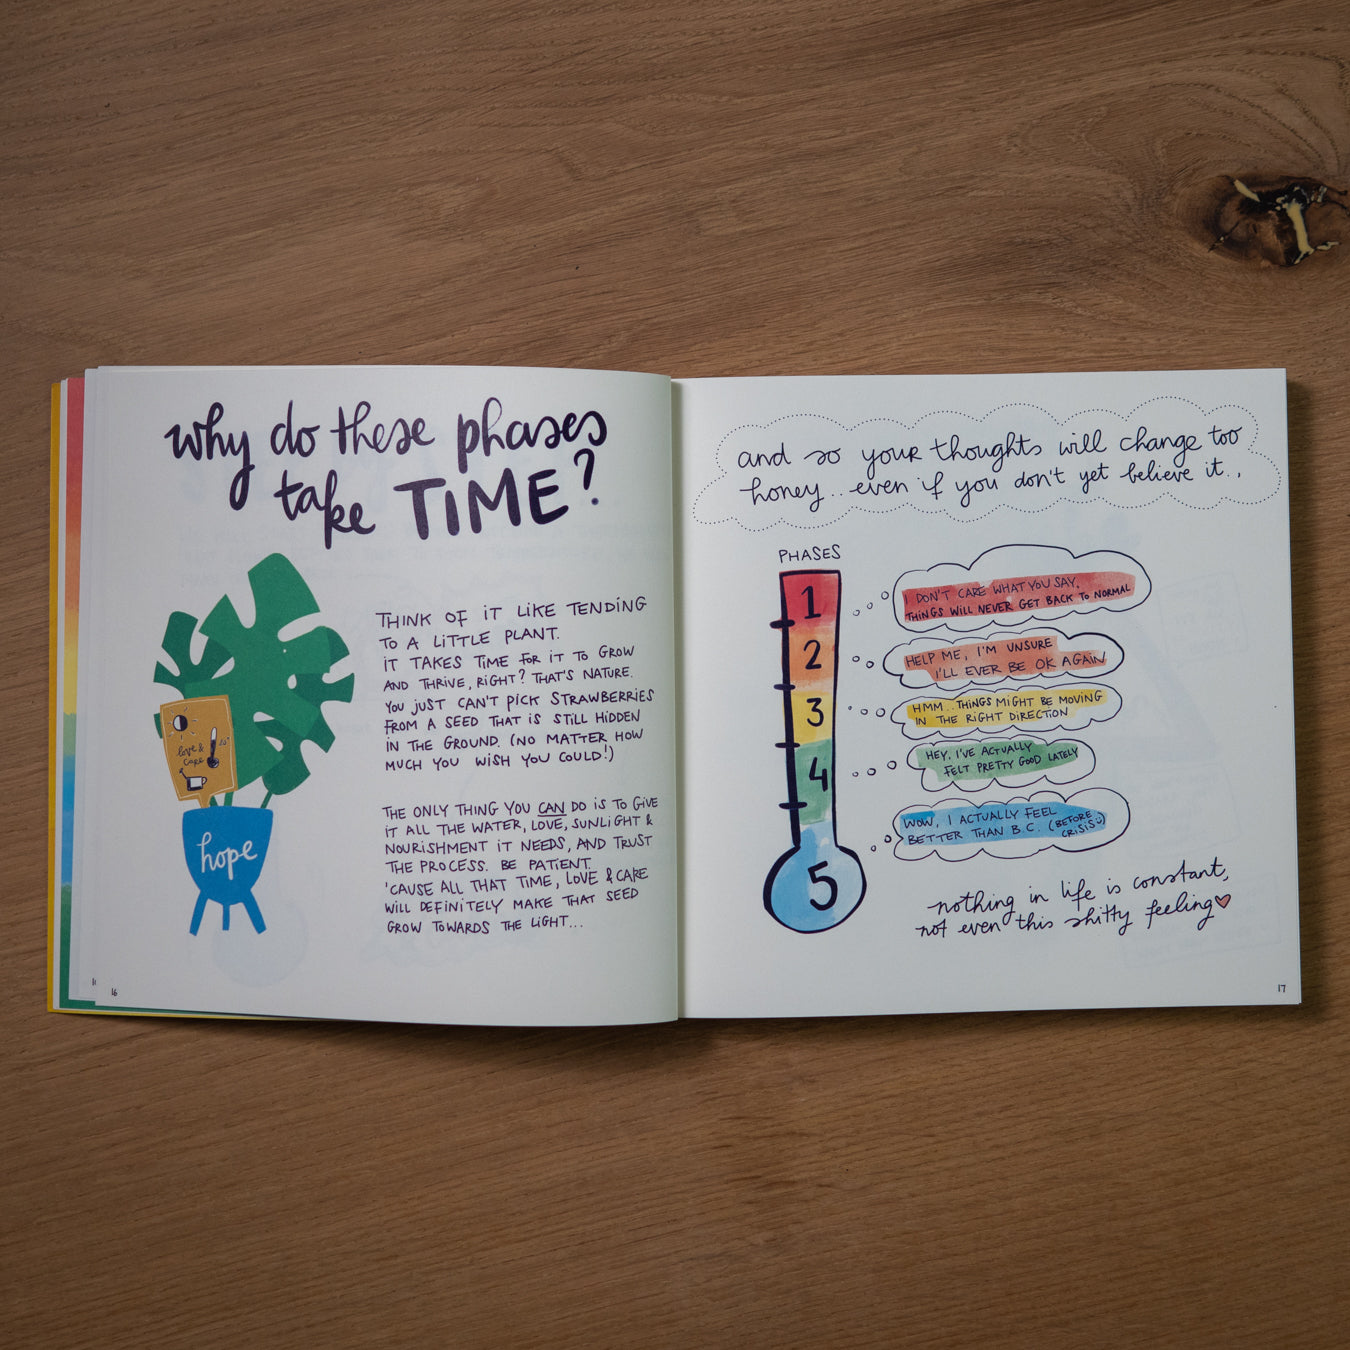 why do these phases
take TIME?
THINK OF IT LIKE TENDING
TO A LITTLE PLANT.
IT TAKES TIME FOR IT TO GROW
AND THRIVE, RIGHT? THAT'S NATURE.
YOU JUST CAN'T PICK STRAWBERRIES
FROM A SEED THAT IS STILL HIDDEN
IN THE GROUND. (NO MATTER HOW
MUCH YOU WISH YOU COULD!)
love &
care
hope
THE ONLY THING YOU CAN DO IS TO GIVE
IT ALL THE WATER, LOVE, SUNLIGHT &
NOURISHMENT IT NEEDS, AND TRUST
THE PROCESS. BE PATIENT
'CAUSE ALL THAT TIME, LOVE & CARE
WILL DEFINITELY MAKE THAT SEED
GROW TOWARDS THE LIGHT...
16
and so your thoughts will change too
honey.. even if you don't yet believe it..
PHASES
1
I DON'T CARE WHAT YOU SAY,
THINGS WILL NEVER GET BACK TO NORMAL
2
HELP ME, I'M UNSURE
I'LL EVER BE OK AGAIN
3
HMM.. THINGS MIGHT BE MOVING
IN THE RIGHT DIRECTION
4
HEY, I'VE ACTUALLY
FELT PRETTY GOOD LATELY
5
WOW, I ACTUALLY FEEL
BETTER THAN B.C. (BEFORE
CRISIS)
nothing in life is constant,
not even this shitty feeling
17